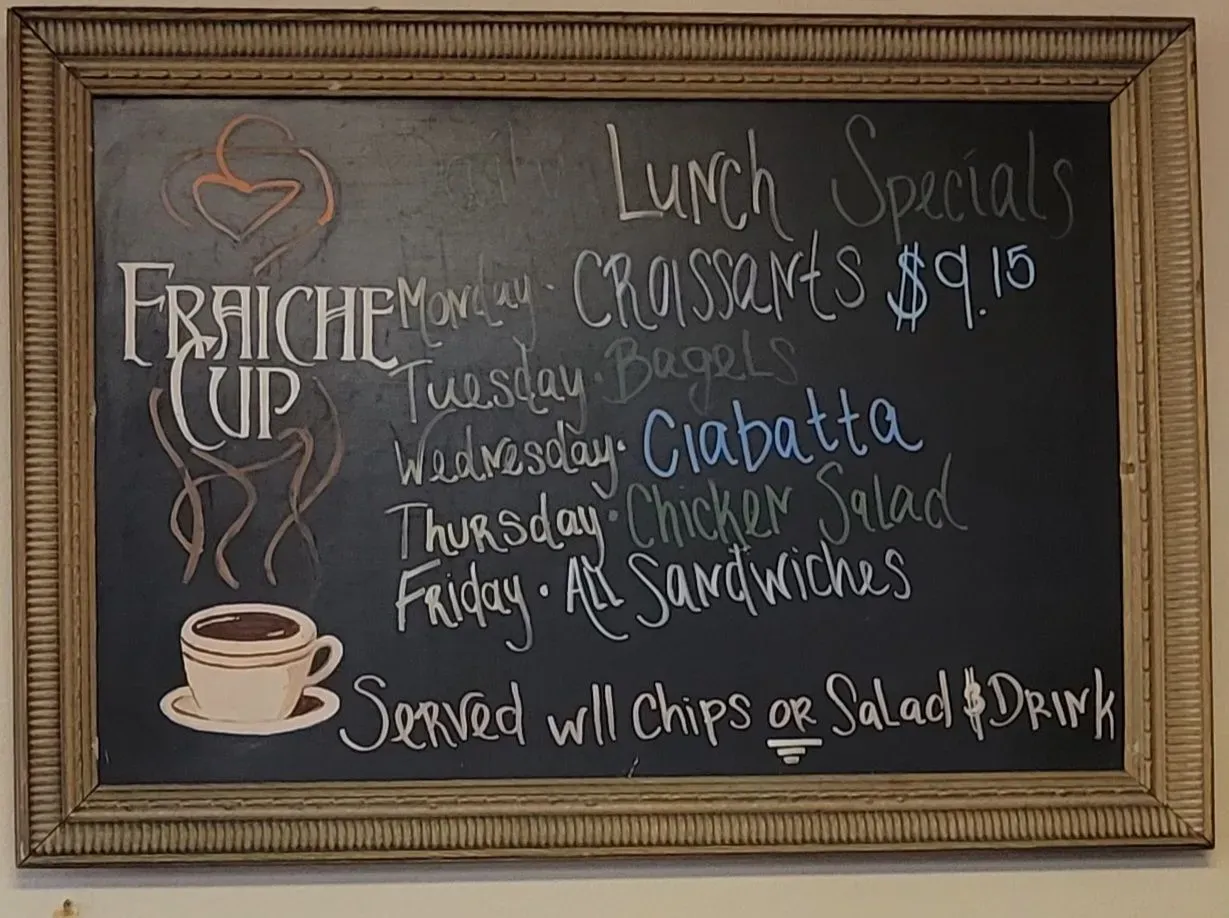 Lunch Specials
FRAICHE CUP
Monday · CROISSANTS $9.15
Tuesday · Bagels
Wednesday · Ciabatta
Thursday · Chicken Salad
Friday · All Sandwiches
Served w/ Chips or Salad & Drink